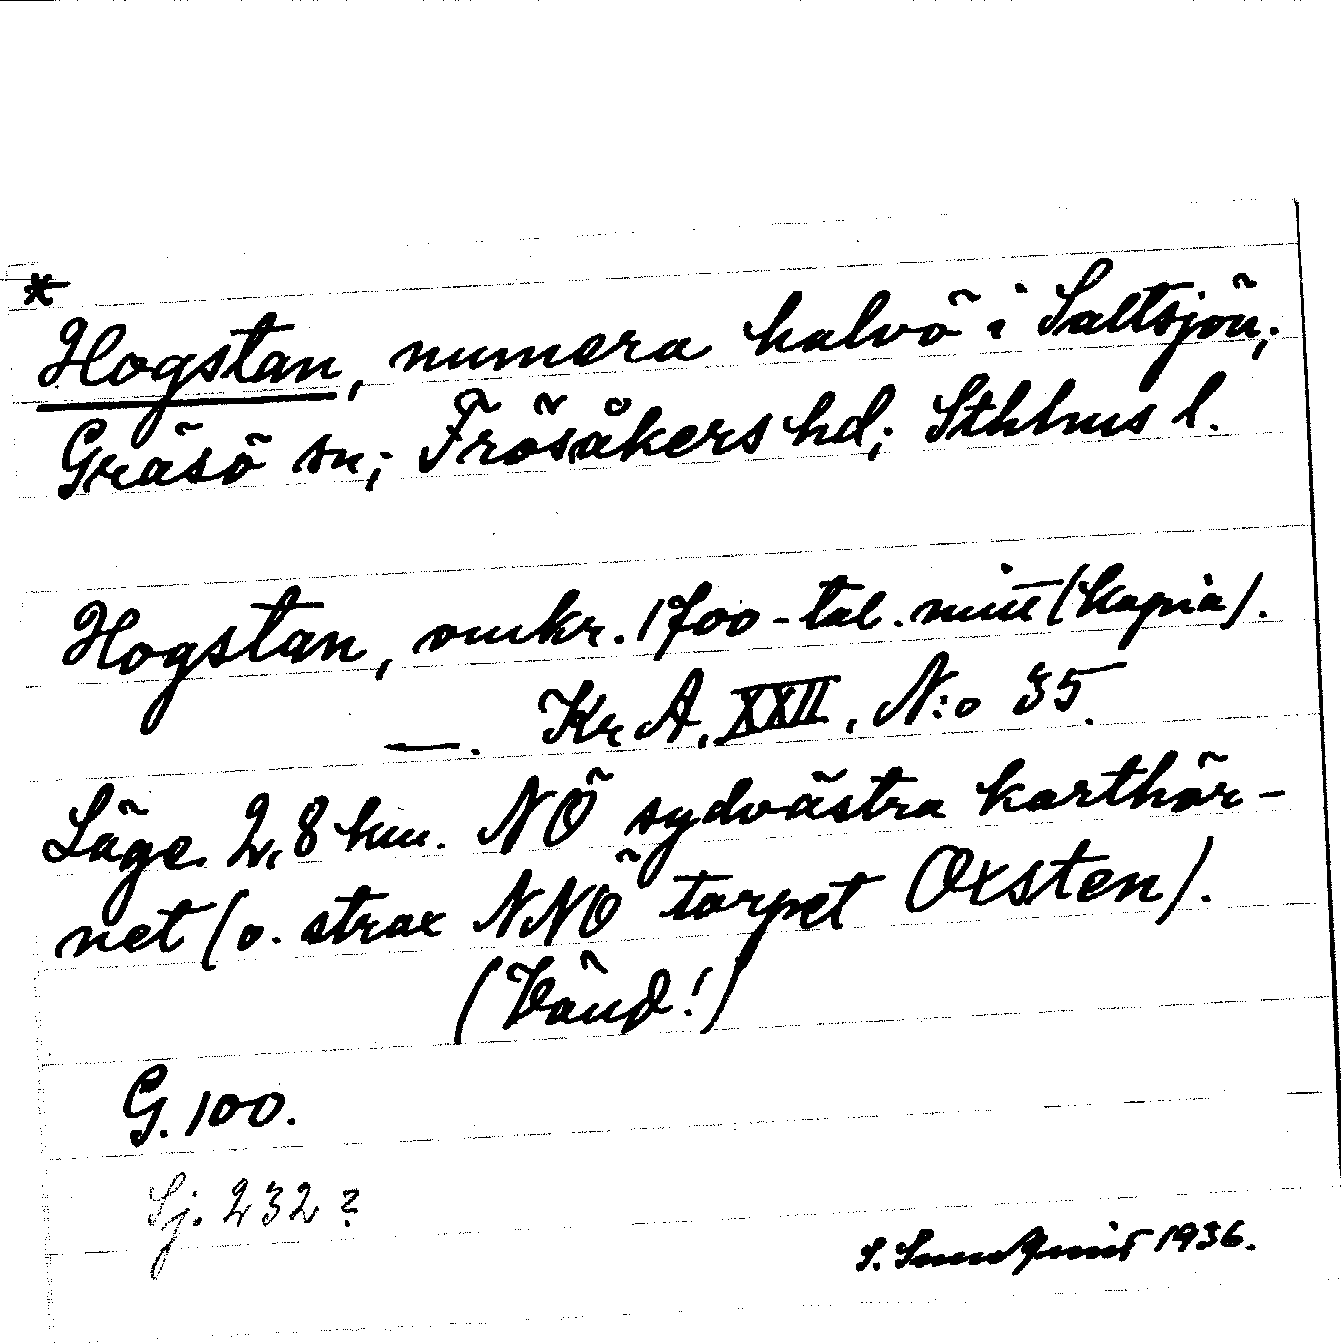 *
Hogstan, numera halvö i Saltsjön;
Gräsö sn; Frösåkers hd; Sthlms l.
Hogstan, omkr. 1700-tal. mitt (kopia).
—. Kr A, XXII, N:o 35.
Läge. 2,8 km. NÖ sydvästra karthör-
net (o. strax NNÖ torpet Oxsten).
(Vänd!)
G. 100.
Sj. 232?
S. Sundqvist 1936.